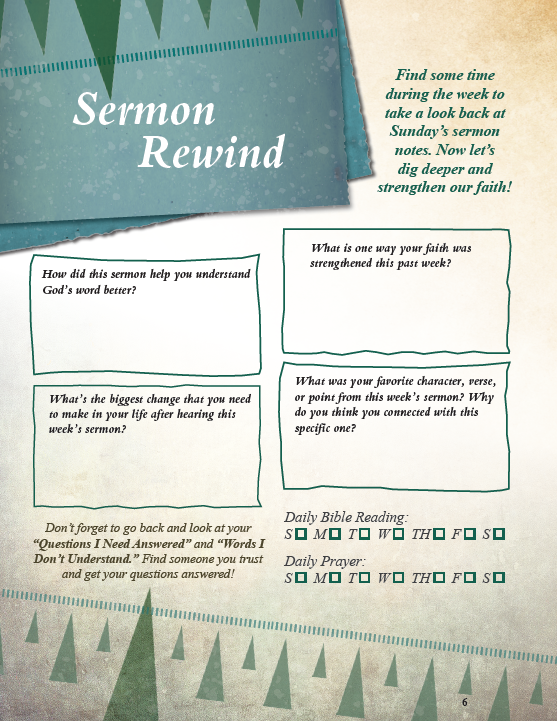 Sermon
Rewind
Find some time
during the week to
take a look back at
Sunday's sermon
notes. Now let's
dig deeper and
strengthen our faith!
How did this sermon help you understand
God's word better?
What is one way your faith was
strengthened this past week?
What's the biggest change that you need
to make in your life after hearing this
week's sermon?
What was your favorite character, verse,
or point from this week's sermon? Why
do you think you connected with this
specific one?
Don't forget to go back and look at your
"Questions I Need Answered" and "Words I
Don't Understand." Find someone you trust
and get your questions answered!
Daily Bible Reading:
S M T W TH F S
Daily Prayer:
S M T W TH F S
6